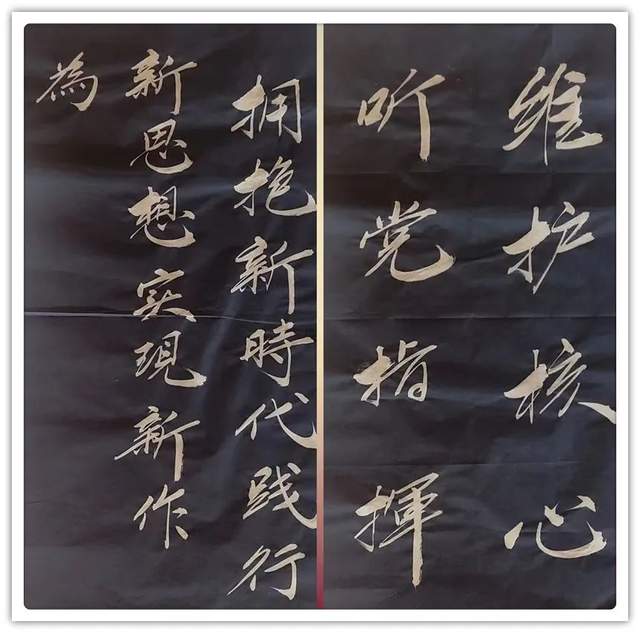 维护核心
听党指揮
拥抱新時代践行
新思想实現新作
為